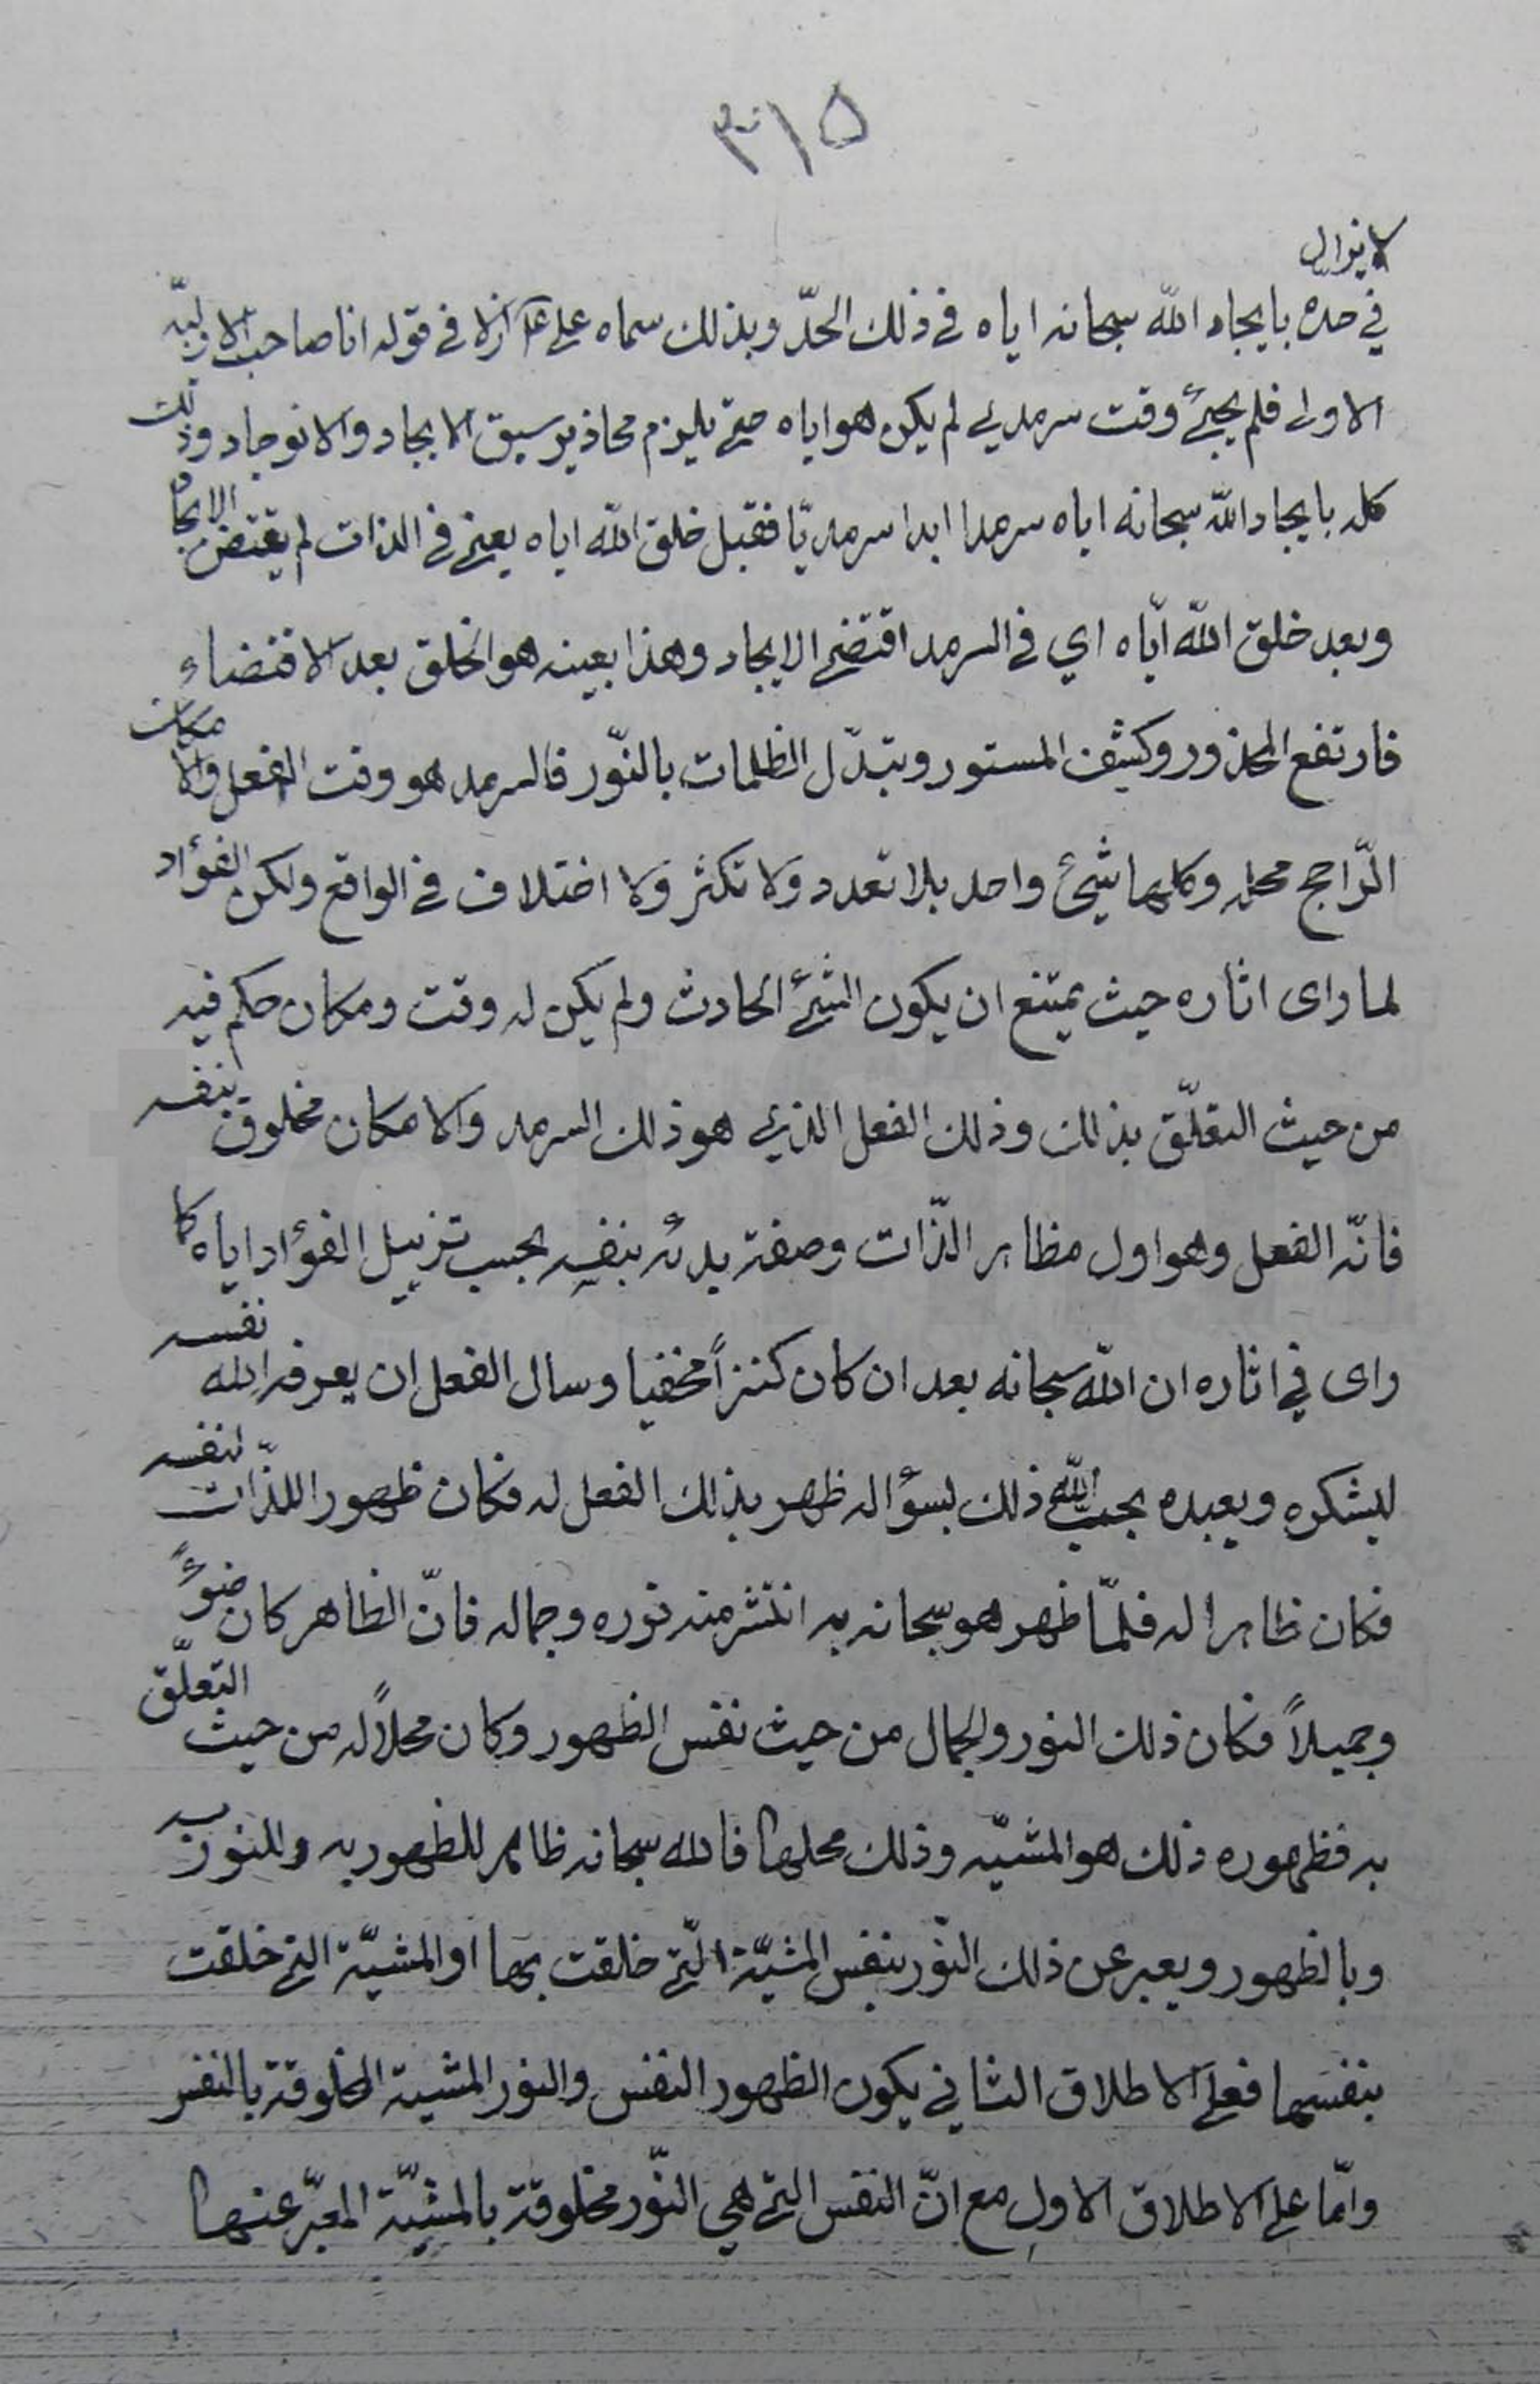 ٣١٥
لا يزال
في حده بايجاد الله سبحانه اياه في ذلك الحدّ وبذلك سماه علي ازلا في قوله انا صاحب الازليّة
الاولى فلم يجئ وقت سرمدي لم يكن هو اياه حتى يلزم محاذير سبق الايجاد والانوجاد وذلك
كله بايجاد الله سبحانه اياه سرمدا ابدا سرمديّا فقبل خلق الله اياه يعني في الذات لم يقتض الايجاد
وبعد خلق الله اياه اي في السرمد اقتضى الايجاد وهذا بعينه هو الخلق بعد الاقتضاء
فارتفع المحذور وكشف المستور وتبدّل الظلمات بالنّور فالسرمد هو وقت الفعل والامكان
الرّاجح محله وكلها شيئ واحد بلا تعدد ولا تكثر ولا اختلاف في الواقع ولكن الفؤاد
لما راى اثاره حيث يمتنع ان يكون الشيئ الحادث ولم يكن له وقت ومكان حكم فيه
من حيث التعلّق بذلك وذلك الفعل الذي هو ذلك السرمد والامكان مخلوق بنفسه
فانّه الفعل وهو اول مظاهر الذّات وصفته بدئه بنفسه بحسب تزييل الفؤاد اياه كما
راى في اثاره ان الله سبحانه بعد ان كان كنزاً مخفيا وسال الفعل ان يعرفه الله نفسه
ليشكره ويعبده بحب الله ذلك لسؤاله ظهر بذلك الفعل له فكان ظهور اللذّات لنفسه
فكان ظاهرا له فلمّا ظهر هو سبحانه به انتشر منه نوره وجماله فانّ الظاهر كان ضوءً
وجميلاً فكان ذلك النور والجمال من حيث نفس الظهور وكان محلاً له من حيث التعلّق
به فظهوره ذلك هو المشيّه وذلك محلها فالله سبحانه ظاهر للظهور به وللنور به
وبالظهور ويعبر عن ذلك النّور بنفس المشيّة الّتي خلقت بها او المشيّة التي خلقت
بنفسها فعلى الاطلاق الثاني يكون الظهور النفس والنور المشية المخلوقة بالنفس
وامّا على الاطلاق الاول مع انّ النفس التي هي النّور مخلوقة بالمشيّة المعبّر عنها